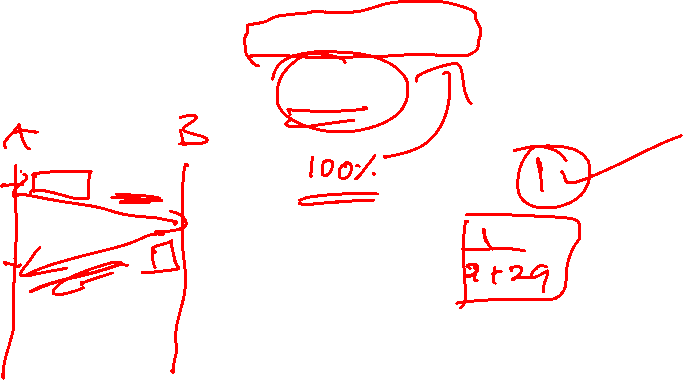 A B
100%
1
1
a+2a